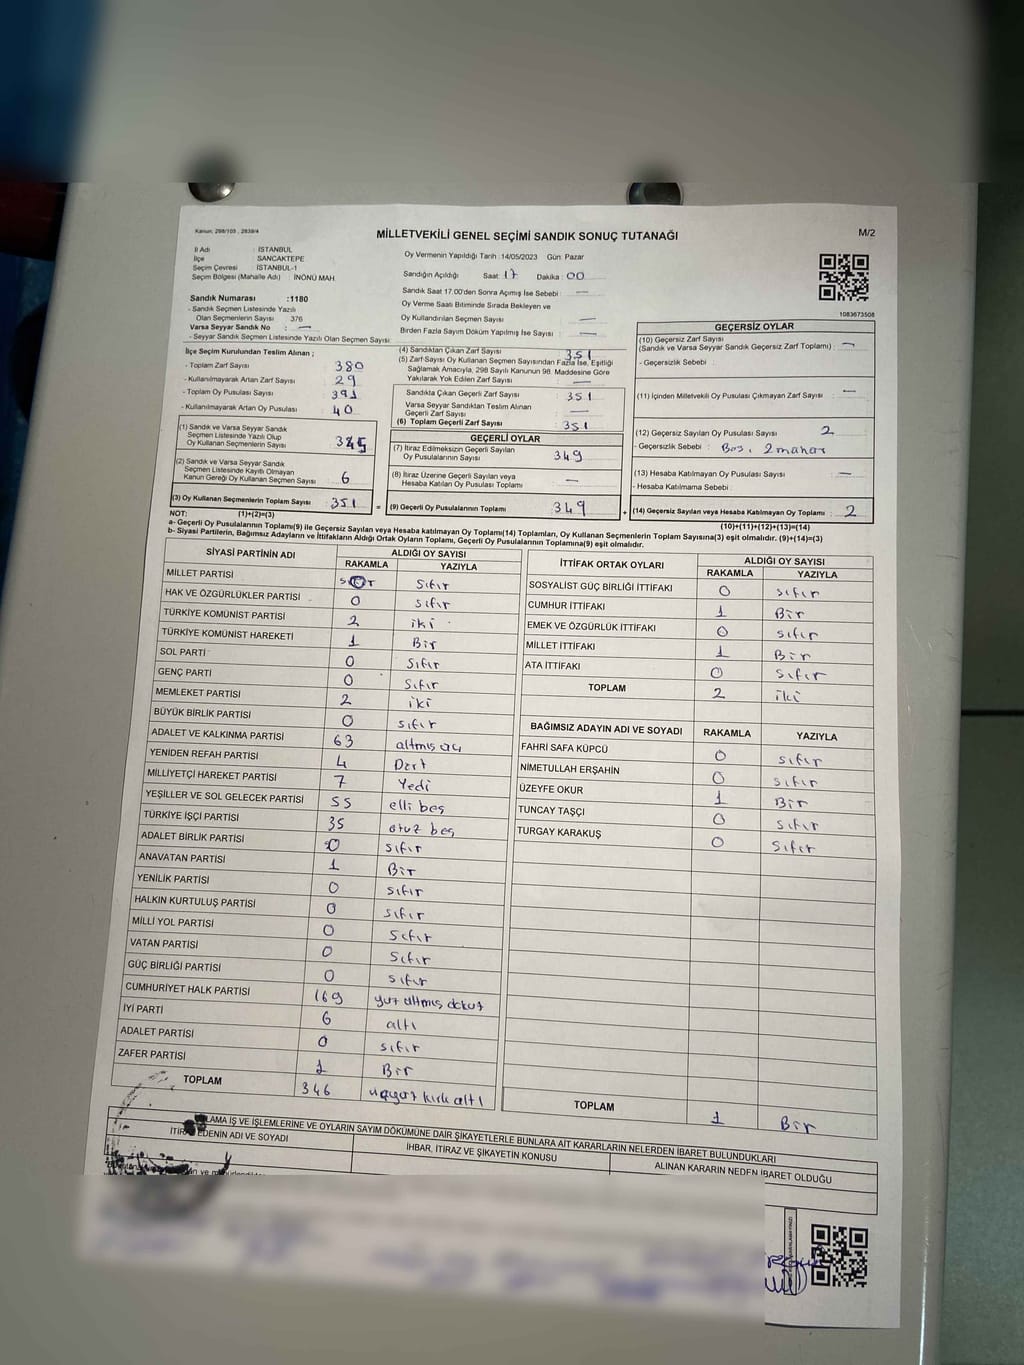 Kanun; 298/105 , 2839/4
MİLLETVEKİLİ GENEL SEÇİMİ SANDIK SONUÇ TUTANAĞI
M/2
İl Adı : İSTANBUL
İlçe : SANCAKTEPE
Seçim Çevresi : İSTANBUL-1
Seçim Bölgesi (Mahalle Adı) : İNÖNÜ MAH.
Oy Vermenin Yapıldığı Tarih :14/05/2023 Gün: Pazar
Sandığın Açıldığı Saat : 17 Dakika : 00
Sandık Saat 17.00'den Sonra Açılmış İse Sebebi : —
Oy Verme Saati Bitiminde Sırada Bekleyen ve
Oy Kullandırılan Seçmen Sayısı : —
Birden Fazla Sayım Döküm Yapılmış İse Sayısı : —
1083673508
Sandık Numarası :1180
- Sandık Seçmen Listesinde Yazılı
Olan Seçmenlerin Sayısı : 376
Varsa Seyyar Sandık No : —
- Seyyar Sandık Seçmen Listesinde Yazılı Olan Seçmen Sayısı:
İlçe Seçim Kurulundan Teslim Alınan ;
- Toplam Zarf Sayısı : 380
- Kullanılmayarak Artan Zarf Sayısı : 29
- Toplam Oy Pusulası Sayısı : 391
- Kullanılmayarak Artan Oy Pusulası : 40
(1) Sandık ve Varsa Seyyar Sandık
Seçmen Listesinde Yazılı Olup
Oy Kullanan Seçmenlerin Sayısı : 345
(2) Sandık ve Varsa Seyyar Sandık
Seçmen Listesinde Kayıtlı Olmayan
Kanun Gereği Oy Kullanan Seçmen Sayısı : 6
(3) Oy Kullanan Seçmenlerin Toplam Sayısı : 351
(1)+(2)=(3)
(4) Sandıktan Çıkan Zarf Sayısı : 351
(5) Zarf Sayısı Oy Kullanan Seçmen Sayısından Fazla İse, Eşitliği
Sağlamak Amacıyla, 298 Sayılı Kanunun 98. Maddesine Göre
Yakılarak Yok Edilen Zarf Sayısı : —
Sandıkta Çıkan Geçerli Zarf Sayısı : 351
Varsa Seyyar Sandıktan Teslim Alınan
Geçerli Zarf Sayısı : —
(6) Toplam Geçerli Zarf Sayısı : 351
GEÇERLİ OYLAR
(7) İtiraz Edilmeksizin Geçerli Sayılan
Oy Pusulalarının Sayısı : 349
(8) İtiraz Üzerine Geçerli Sayılan veya
Hesaba Katılan Oy Pusulası Toplamı : —
(9) Geçerli Oy Pusulalarının Toplamı : 349
GEÇERSİZ OYLAR
(10) Geçersiz Zarf Sayısı
(Sandık ve Varsa Seyyar Sandık Geçersiz Zarf Toplamı) : —
- Geçersizlik Sebebi :
(11) İçinden Milletvekili Oy Pusulası Çıkmayan Zarf Sayısı : —
(12) Geçersiz Sayılan Oy Pusulası Sayısı : 2
- Geçersizlik Sebebi : Boş, 2 mühür
(13) Hesaba Katılmayan Oy Pusulası Sayısı : —
- Hesaba Katılmama Sebebi :
(14) Geçersiz Sayılan veya Hesaba Katılmayan Oy Toplamı : 2
(10)+(11)+(12)+(13)=(14)
NOT:
a- Geçerli Oy Pusulalarının Toplamı(9) ile Geçersiz Sayılan veya Hesaba katılmayan Oy Toplamı(14) Toplamları, Oy Kullanan Seçmenlerin Toplam Sayısına(3) eşit olmalıdır. (9)+(14)=(3)
b- Siyasi Partilerin, Bağımsız Adayların ve İttifakların Aldığı Ortak Oyların Toplamı, Geçerli Oy Pusulalarının Toplamına(9) eşit olmalıdır.
SİYASİ PARTİNİN ADI ALDIĞI OY SAYISI
RAKAMLA YAZIYLA
MİLLET PARTİSİ Sıfır
HAK VE ÖZGÜRLÜKLER PARTİSİ 0 Sıfır
TÜRKİYE KOMÜNİST PARTİSİ 2 iki
TÜRKİYE KOMÜNİST HAREKETİ 1 Bir
SOL PARTİ 0 Sıfır
GENÇ PARTİ 0 Sıfır
MEMLEKET PARTİSİ 2 iki
BÜYÜK BİRLİK PARTİSİ 0 sıfır
ADALET VE KALKINMA PARTİSİ 63 altmış üç
YENİDEN REFAH PARTİSİ 4 Dört
MİLLİYETÇİ HAREKET PARTİSİ 7 Yedi
YEŞİLLER VE SOL GELECEK PARTİSİ 55 elli beş
TÜRKİYE İŞÇİ PARTİSİ 35 otuz beş
ADALET BİRLİK PARTİSİ 0 sıfır
ANAVATAN PARTİSİ 1 Bir
YENİLİK PARTİSİ 0 sıfır
HALKIN KURTULUŞ PARTİSİ 0 sıfır
MİLLİ YOL PARTİSİ 0 Sıfır
VATAN PARTİSİ 0 Sıfır
GÜÇ BİRLİĞİ PARTİSİ 0 sıfır
CUMHURİYET HALK PARTİSİ 169 yüz altmış dokuz
İYİ PARTİ 6 altı
ADALET PARTİSİ 0 sıfır
ZAFER PARTİSİ 1 Bir
TOPLAM 346 üçyüz kırk altı
İTTİFAK ORTAK OYLARI ALDIĞI OY SAYISI
RAKAMLA YAZIYLA
SOSYALİST GÜÇ BİRLİĞİ İTTİFAKI 0 sıfır
CUMHUR İTTİFAKI 1 Bir
EMEK VE ÖZGÜRLÜK İTTİFAKI 0 sıfır
MİLLET İTTİFAKI 1 Bir
ATA İTTİFAKI 0 Sıfır
TOPLAM 2 iki
BAĞIMSIZ ADAYIN ADI VE SOYADI RAKAMLA YAZIYLA
FAHRİ SAFA KÜPCÜ 0 sıfır
NİMETULLAH ERŞAHİN 0 sıfır
ÜZEYFE OKUR 1 Bir
TUNCAY TAŞÇI 0 sıfır
TURGAY KARAKUŞ 0 Sıfır
TOPLAM 1 Bir
LAMA İŞ VE İŞLEMLERİNE VE OYLARIN SAYIM DÖKÜMÜNE DAİR ŞİKAYETLERLE BUNLARA AİT KARARLARIN NELERDEN İBARET BULUNDUKLARI
İTİRAZ EDENİN ADI VE SOYADI
İHBAR, İTİRAZ VE ŞİKAYETİN KONUSU
ALINAN KARARIN NEDEN İBARET OLDUĞU